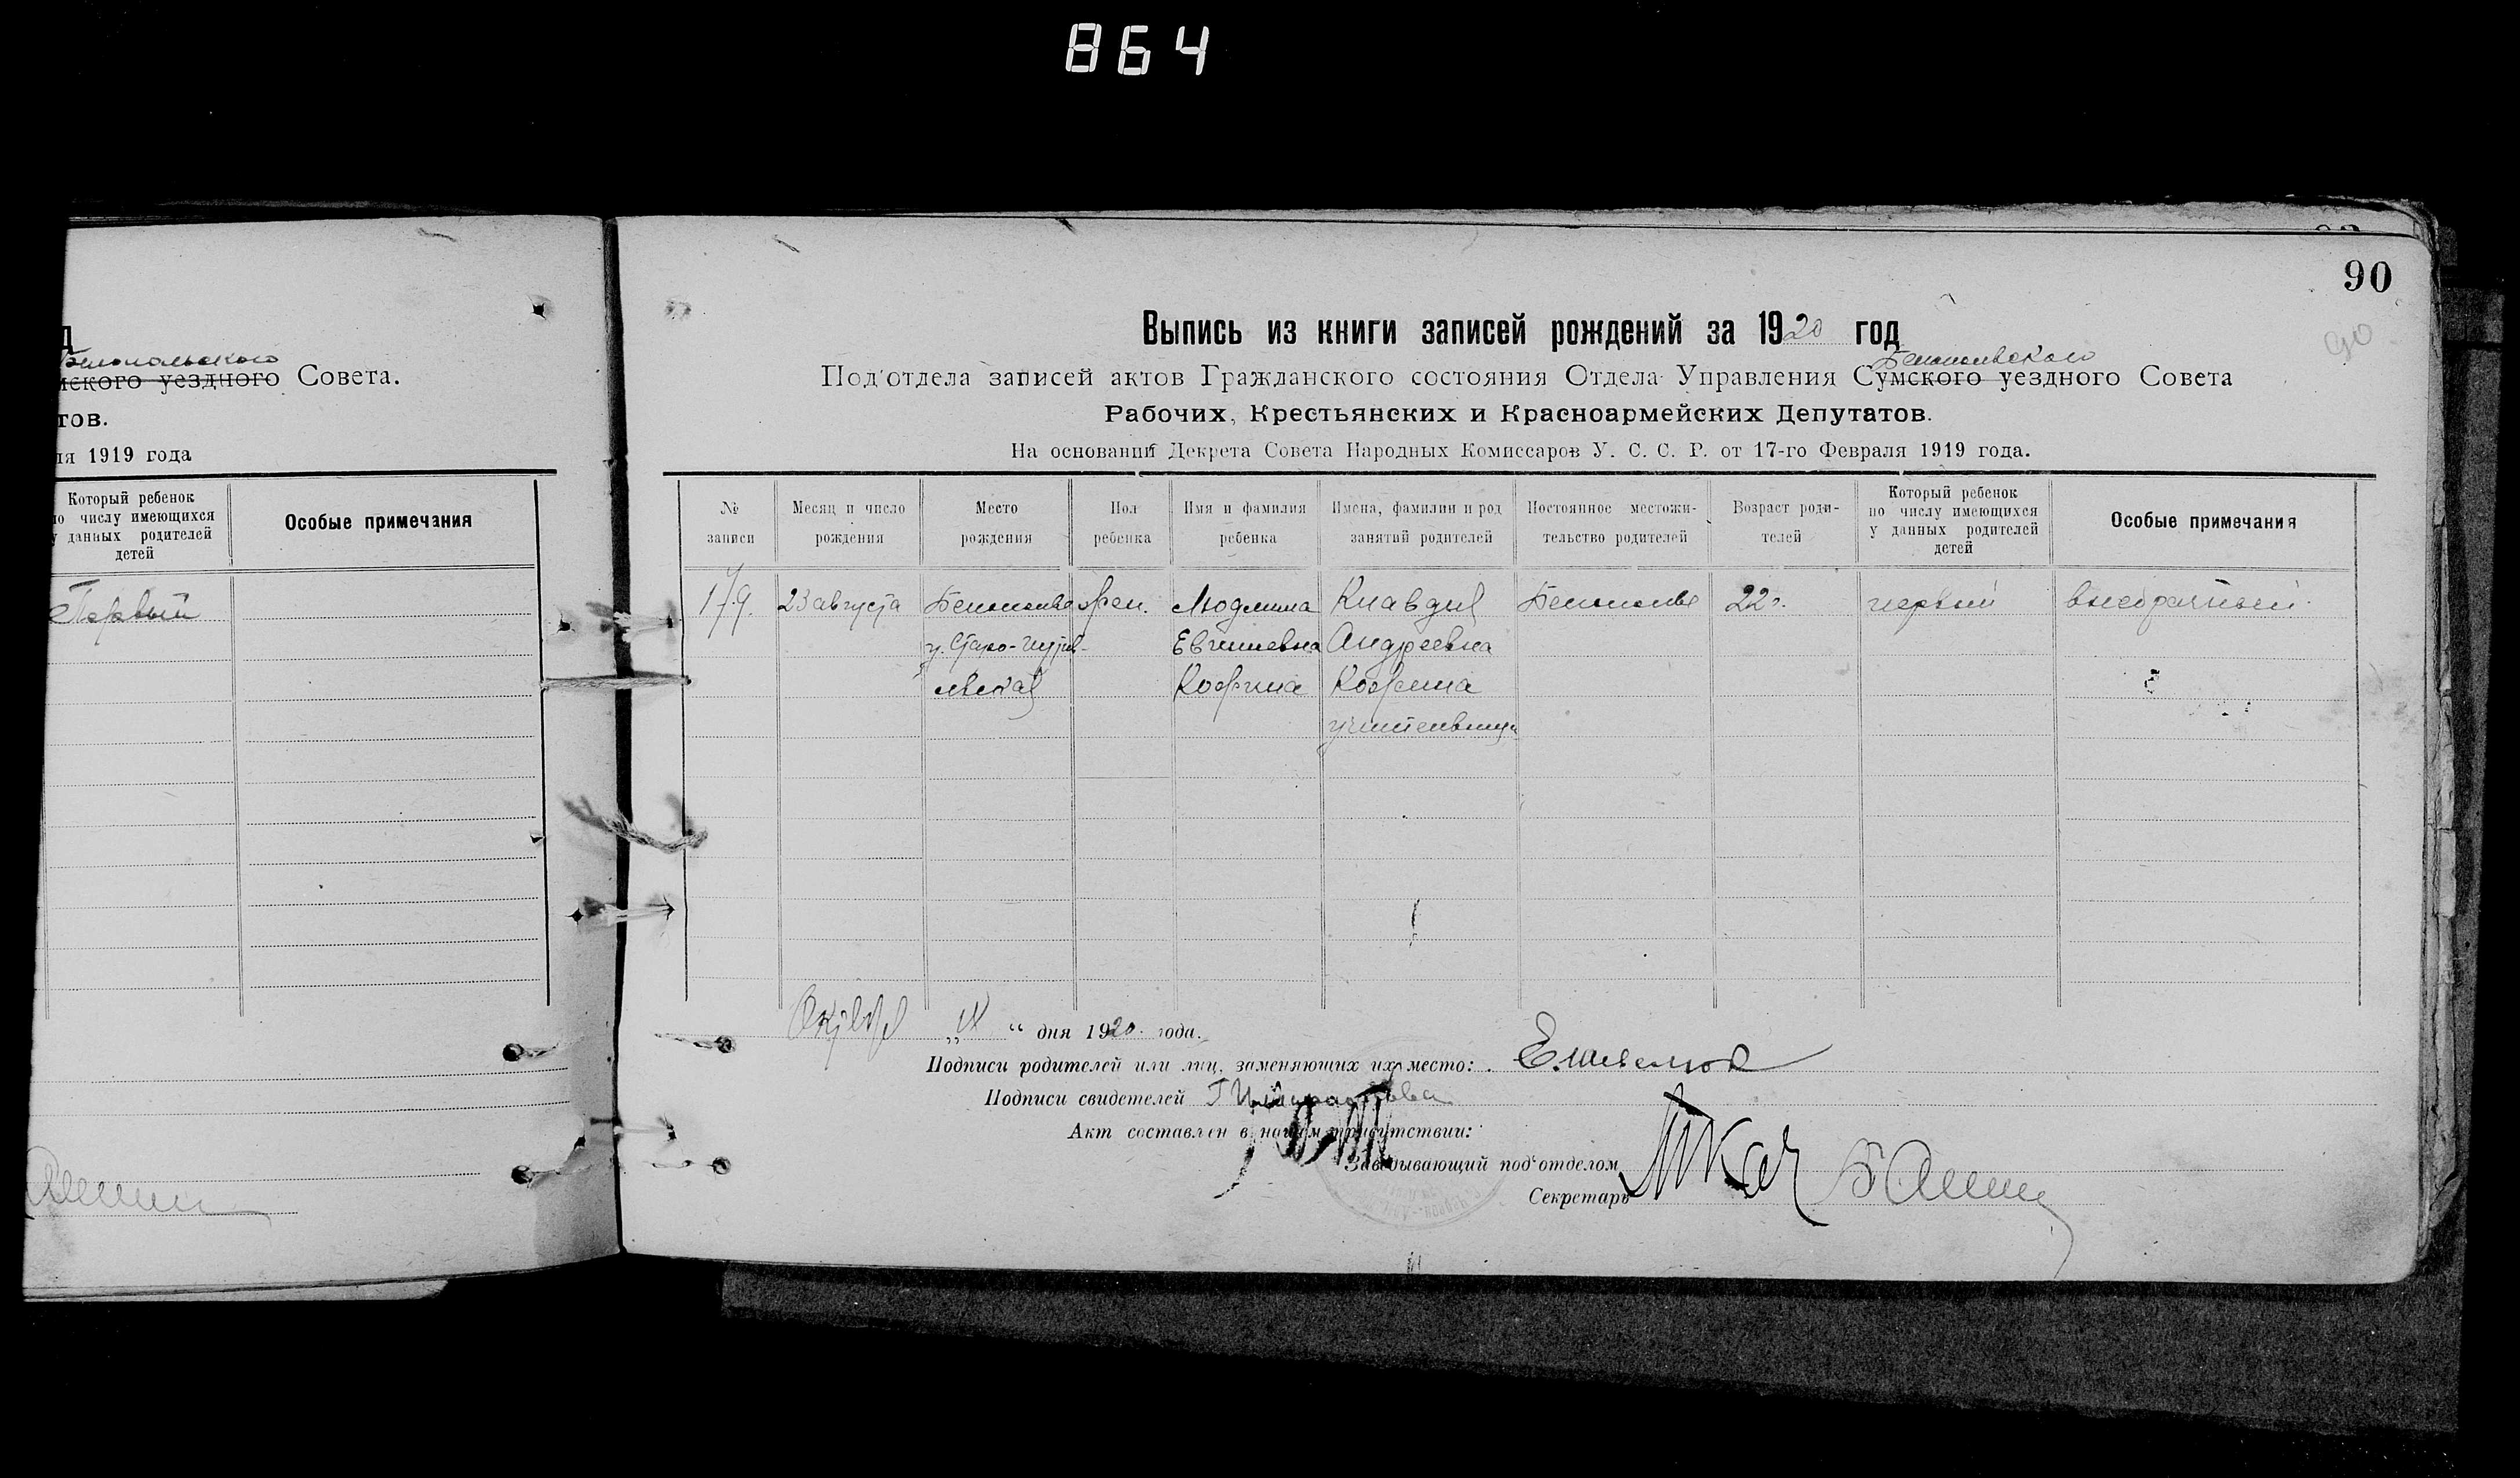 864
д
Белопольского
мского уездного Совета.
тов.
ля 1919 года
Который ребенок
по числу имеющихся
у данных родителей
детей
Особые примечания
Первый
90
90
Выпись из книги записей рождений за 1920 год
Белопольского
Под'отдела записей актов Гражданского состояния Отдела Управления Сумского уездного Совета
Рабочих, Крестьянских и Красноармейских Депутатов.
На основании Декрета Совета Народных Комиссаров У. С. С. Р. от 17-го Февраля 1919 года.
№ записи
Месяц и число рождения
Место рождения
Пол ребенка
Имя и фамилия ребенка
Имена, фамилии и род занятий родителей
Постоянное местожительство родителей
Возраст родителей
Который ребенок по числу имеющихся у данных родителей детей
Особые примечания
179. 23 августа Белополье жен. Людмила Клавдия Белополье 22 г. первый внебрачный
у. Старо-Путив- Евгениевна Андреевна
льская Кофина Кофина
учительница
Октября „ IX “ дня 1920 года.
Подписи родителей или лиц, заменяющих их место:
Подписи свидетелей
Акт составлен в нашем присутствии:
Заведывающий под'отделом
Секретарь